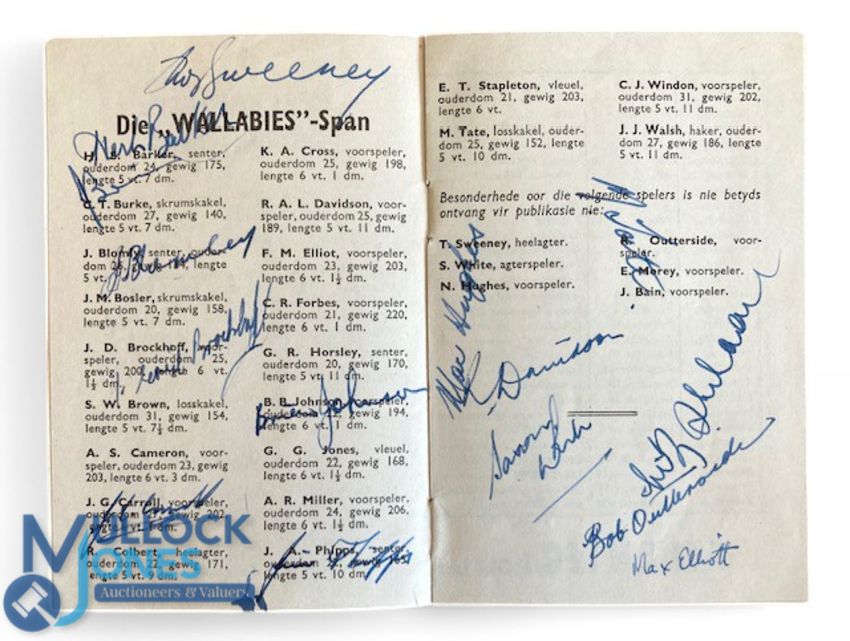 Die „WALLABIES"-Span
H. S. Barker, senter,
ouderdom 24, gewig 175,
lengte 5 vt. 7 dm.
C. T. Burke, skrumskakel,
ouderdom 27, gewig 140,
lengte 5 vt. 7 dm.
J. Blomly, senter, ouder-
lengte 5 vt.
J. M. Bosler, skrumskakel,
ouderdom 20, gewig 158,
lengte 5 vt. 7 dm.
J. D. Brockhoff, voor-
speler, ouderdom 25,
gewig 200, lengte 6 vt.
1½ dm.
S. W. Brown, losskakel,
ouderdom 31, gewig 154,
lengte 5 vt. 7½ dm.
A. S. Cameron, voor-
speler, ouderdom 23, gewig
203, lengte 6 vt. 3 dm.
J. G. Carroll, voorspeler,
R. Colbert, heelagter,
ouderdom 22, gewig 171,
lengte 5 vt. 9 dm.
K. A. Cross, voorspeler,
ouderdom 25, gewig 198,
lengte 6 vt. 1 dm.
R. A. L. Davidson, voor-
speler, ouderdom 25, gewig
189, lengte 5 vt. 11 dm.
F. M. Elliot, voorspeler,
ouderdom 23, gewig 203,
lengte 6 vt. 1½ dm.
C. R. Forbes, voorspeler,
ouderdom 21, gewig 220,
lengte 6 vt. 1 dm.
G. R. Horsley, senter,
ouderdom 20, gewig 170,
lengte 5 vt. 11 dm.
B. B. Johnson, voorspeler,
ouderdom 22, gewig 194,
lengte 6 vt. 1 dm.
G. G. Jones, vleuel,
ouderdom 22, gewig 168,
lengte 6 vt. 1½ dm.
A. R. Miller, voorspeler,
ouderdom 24, gewig 206,
lengte 6 vt. 1½ dm.
J. A. Phipps, senter,
ouderdom 21, gewig 165,
lengte 5 vt. 10 dm.
E. T. Stapleton, vleuel,
ouderdom 21, gewig 203,
lengte 6 vt.
M. Tate, losskakel, ouder-
dom 25, gewig 152, lengte
5 vt. 10 dm.
C. J. Windon, voorspeler,
ouderdom 31, gewig 202,
lengte 5 vt. 11 dm.
J. J. Walsh, haker, ouder-
dom 27, gewig 186, lengte
5 vt. 11 dm.
Besonderhede oor die volgende spelers is nie betyds
ontvang vir publikasie nie:
T. Sweeney, heelagter.
S. White, agterspeler.
N. Hughes, voorspeler.
R. Outterside, voor-
speler.
E. Morey, voorspeler.
J. Bain, voorspeler.
Sweeney
Herb Barker
J Blomley
J. Brockhoff
Johnson
Phipps
Hughes
Davidson
Bob Outterside
Max Elliott
MULLOCK
JONES
Auctioneers & Valuers